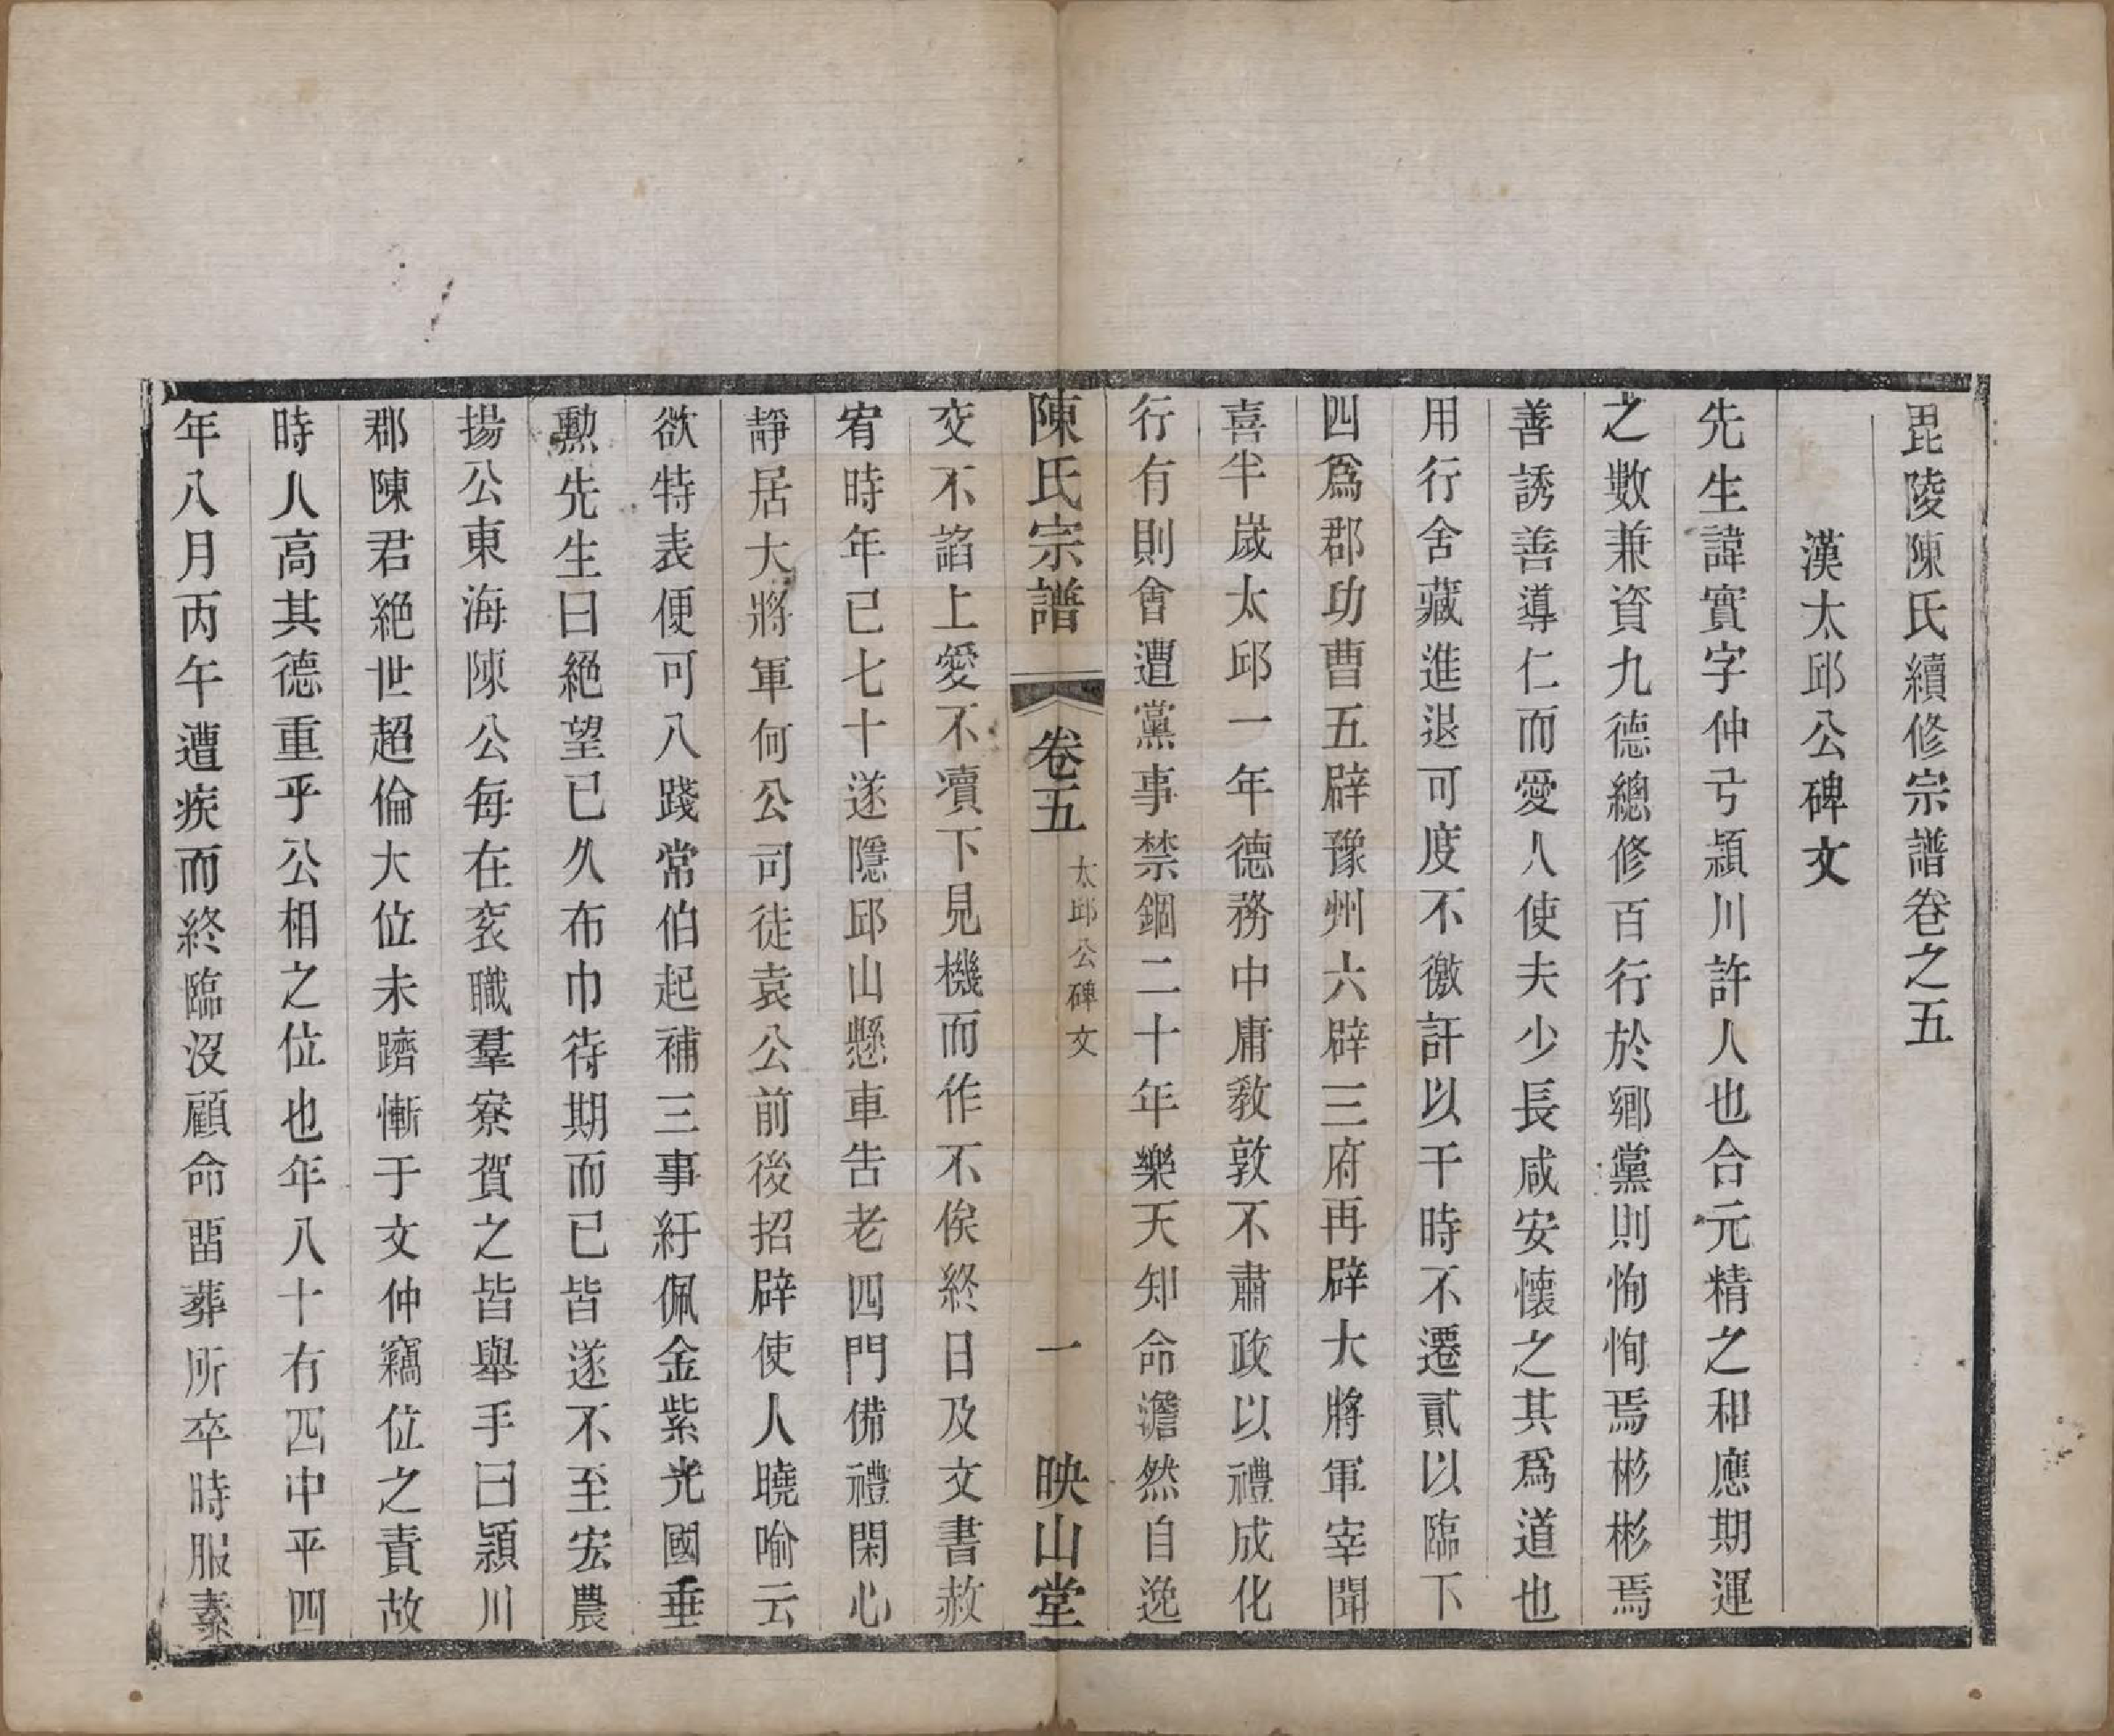 毘陵陳氏續修宗譜卷之五
漢太邱公碑文
先生諱實字仲弓潁川許人也合元精之和應期運
之數兼資九德總修百行於鄉黨則恂恂焉彬彬焉
善誘善導仁而愛人使夫少長咸安懷之其爲道也
用行舍藏進退可度不徼訐以干時不遷貳以臨下
四爲郡功曹五辟豫州六辟三府再辟大將軍宰聞
喜半嵗太邱一年德務中庸敎敦不肅政以禮成化
行有則會遭黨事禁錮二十年樂天知命澹然自逸
陳氏宗譜 卷五 太邱公碑文 一 映山堂
交不諂上愛不凟下見機而作不俟終日及文書赦
宥時年已七十遂隱邱山懸車告老四門備禮閑心
靜居大將軍何公司徒袁公前後招辟使人曉喻云
欲特表便可入踐常伯起補三事紆佩金紫光國垂
勲先生曰絕望已久布巾待期而已皆遂不至宏農
揚公東海陳公每在衮職羣寮賀之皆舉手曰潁川
郡陳君絕世超倫大位未躋慚于文仲竊位之責故
時人高其德重乎公相之位也年八十有四中平四
年八月丙午遭疾而終臨沒顧命畱葬所卒時服素